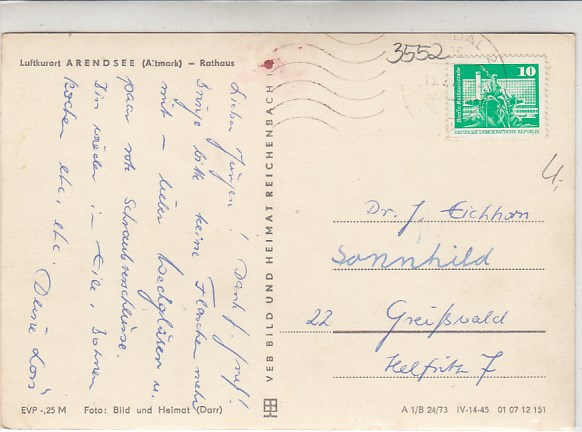 Luftkurort ARENDSEE (Altmark) – Rathaus
Lieber Jürgen! Dank f. Gruß!
Bringe bitte keine Flaschen mehr
mit – lieber Weckgläser u.
paar rote Schraubverschlüsse.
Bin wieder in Eile, Bohnen
kochen etc, etc. Deine
EVP -,25 M Foto: Bild und Heimat (Darr)
VEB BILD UND HEIMAT REICHENBACH I
3552
10
Berlin, Rathausstraße
DEUTSCHE DEMOKRATISCHE REPUBLIK
Dr. J. Eichhorn
Sonnhild
22 Greifswald
Helfritz 7
A 1/B 24/73 IV-14-45 01 07 12 151